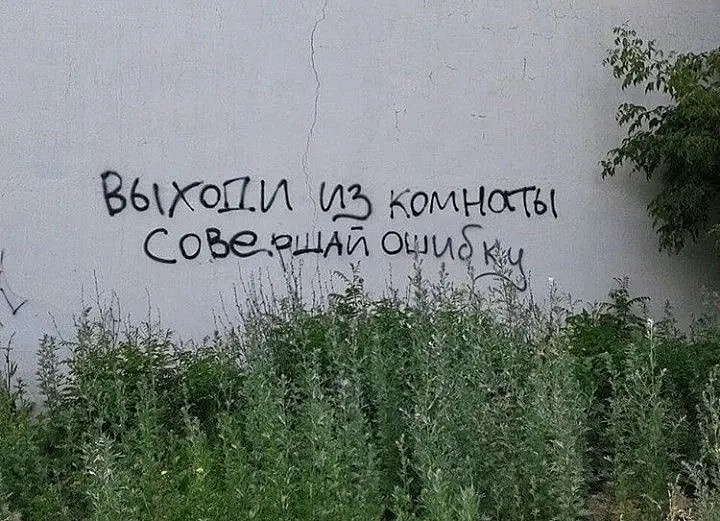 Выходи из комнаты
совершай ошибку